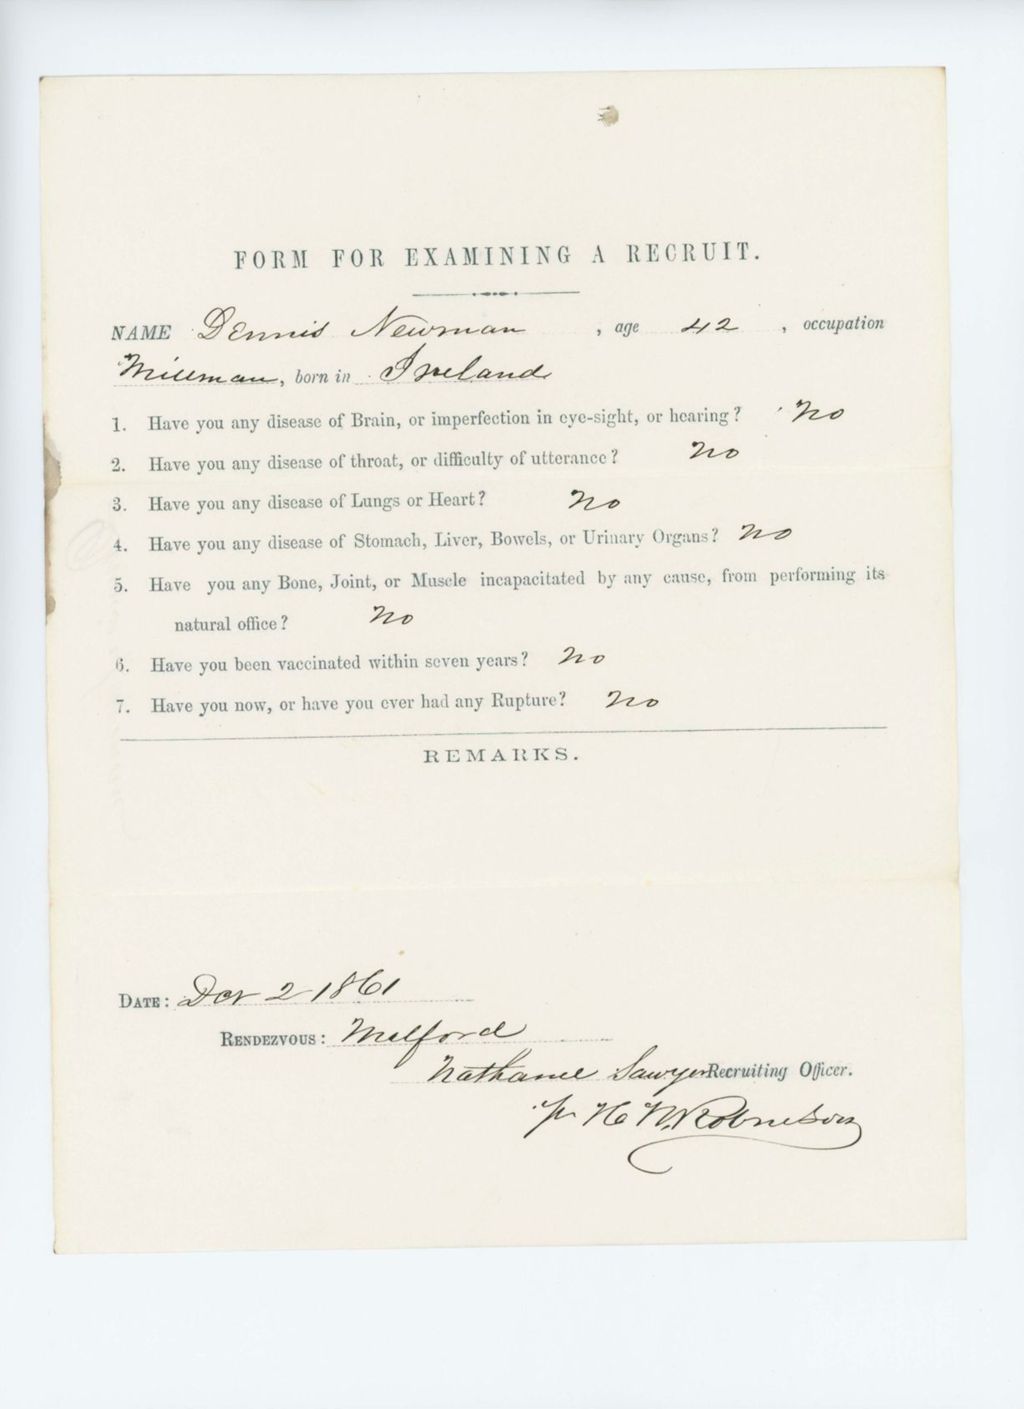 FORM FOR EXAMINING A RECRUIT.
NAME Dennis Newman, age 42, occupation
Millman, born in Ireland
1. Have you any disease of Brain, or imperfection in eye-sight, or hearing? No
2. Have you any disease of throat, or difficulty of utterance? No
3. Have you any disease of Lungs or Heart? No
4. Have you any disease of Stomach, Liver, Bowels, or Urinary Organs? No
5. Have you any Bone, Joint, or Muscle incapacitated by any cause, from performing its
natural office? No
6. Have you been vaccinated within seven years? No
7. Have you now, or have you ever had any Rupture? No
REMARKS.
DATE: 2 1861
RENDEZVOUS: Milford
Nathaniel Sawyer Recruiting Officer.
pr H N Robinson